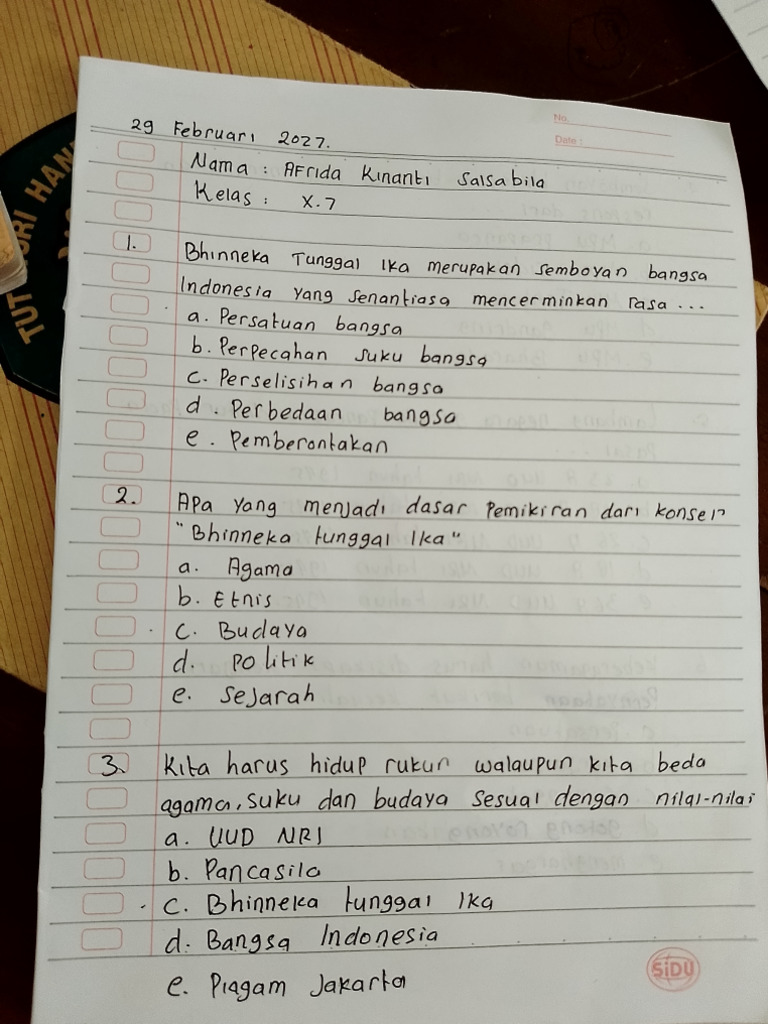 No.
Date :
29 Februari 2027.
Nama : AFrida Kinanti Salsabila
Kelas : X.7
1. Bhinneka Tunggal Ika merupakan semboyan bangsa
Indonesia yang senantiasa mencerminkan rasa ...
a. Persatuan bangsa
b. Perpecahan suku bangsa
c. Perselisihan bangsa
d. Perbedaan bangsa
e. Pemberontakan
2. Apa yang menjadi dasar pemikiran dari konsep
"Bhinneka tunggal Ika"
a. Agama
b. Etnis
c. Budaya
d. Politik
e. Sejarah
3. Kita harus hidup rukun walaupun kita beda
agama, suku dan budaya sesuai dengan nilai-nilai
a. UUD NRI
b. Pancasila
c. Bhinneka tunggal Ika
d. Bangsa Indonesia
e. Piagam Jakarta
SiDU